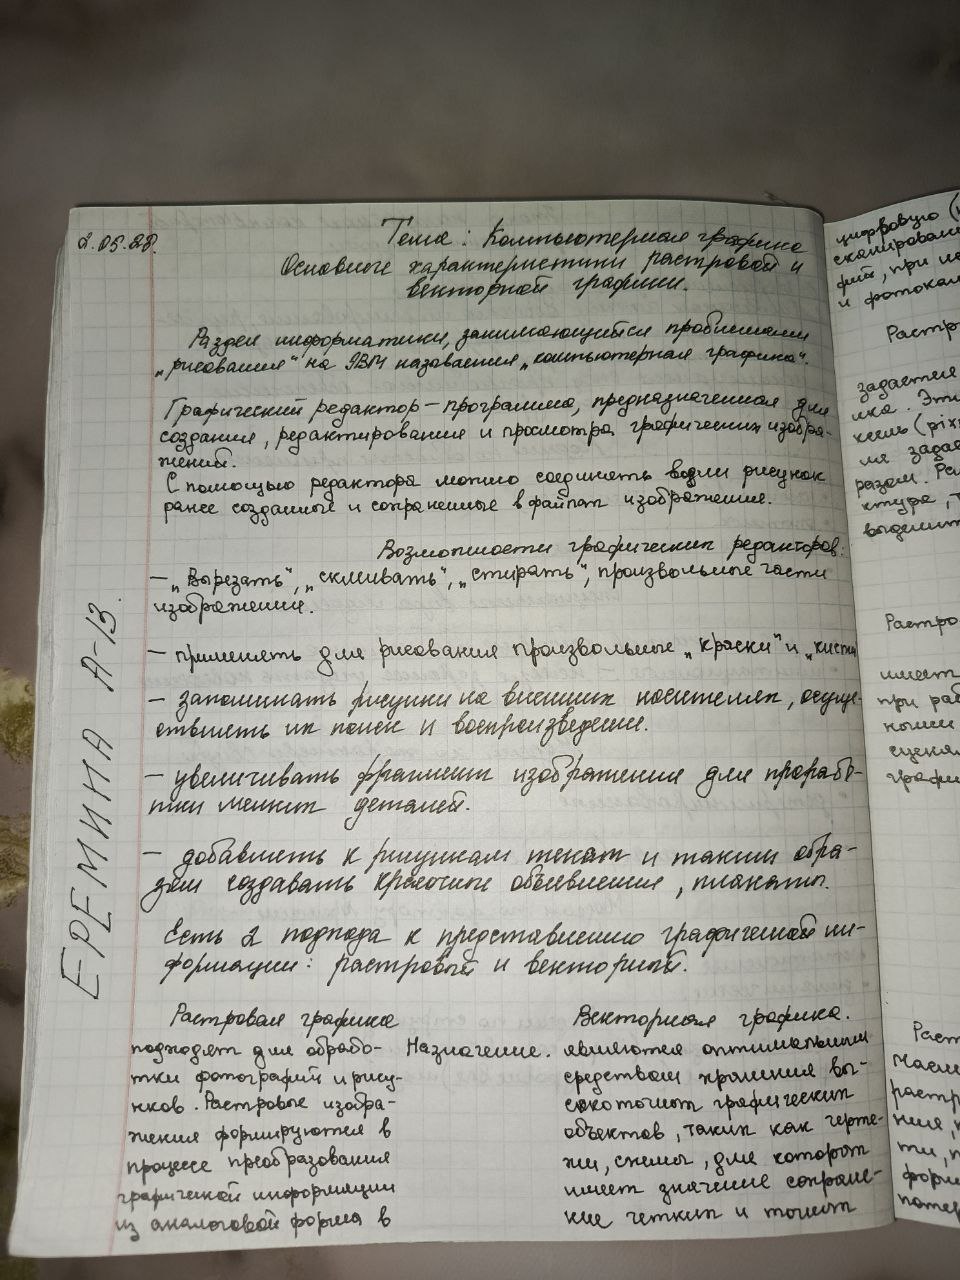 2.05.28.
Тема: Компьютерная графика
Основные характеристики растровой и
векторной графики.
Раздел информатики, занимающейся проблемами
„рисования" на ЭВМ называется „компьютерная графика".
Графический редактор – программа, предназначенная для
создания, редактирования и просмотра графических изобра-
жений.
С помощью редактора можно соединять в рисунок
ранее созданные и сохраненные в файлах изображения.
Возможности графических редакторов:
– „Вырезать", „склеивать", „стирать", произвольные части
изображения.
– применять для рисования произвольные „краски" и „кисти
– запоминать рисунки на внешних носителях, осуще-
ствлять их поиск и воспроизведение.
– увеличивать фрагмент изображения для прорабо-
тки мелких деталей.
– добавлять к рисункам текст и таким обра-
зом создавать красочные объявления, плакаты.
Есть 2 подхода к представлению графической ин-
формации: растровый и векторный.
ЕРЕМИНА А-13.
Растровая графика
подходят для обрабо-
тки фотографий и рису-
нков. Растровые изобра-
жения формируются в
процессе преобразования
графической информации
из аналоговой форма в
Назначение.
Векторная графика.
являются оптимальным
средством хранения вы-
сокоточных графических
объектов, таких как черте-
жи, схемы, для которых
имеет значение сохране-
ние четких и точных
цифровую (
сканировани
фий, при
и фотокам
Растр
задается
ка. Эти
ксель (pix
мя задае
разом. Ра
выделит
Растро
имеет
при раб
ными
сцена
графи
Раст
растр
ния,
ти, п
форм
потер